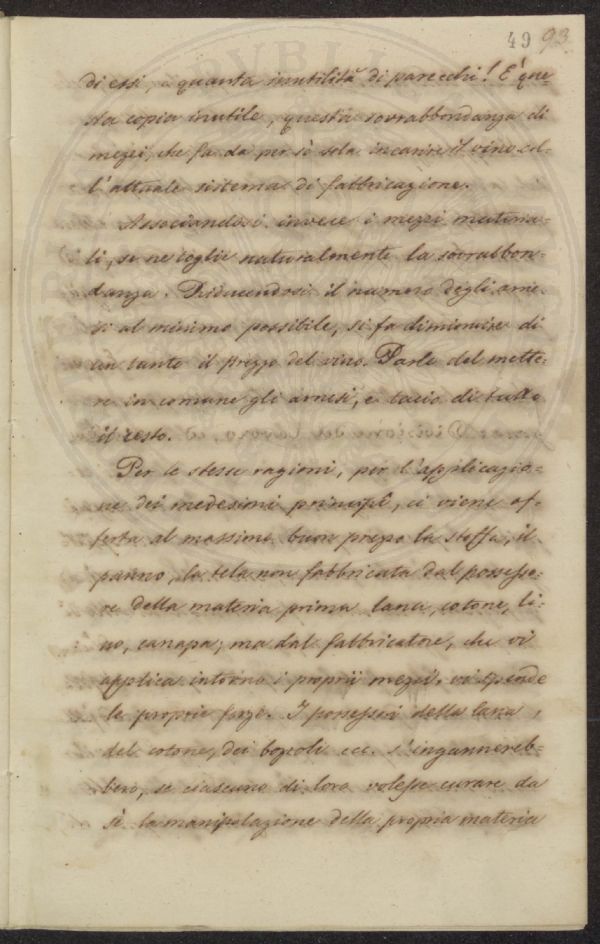 49 93
di essi, e quanta inutilità di parecchi! E' que-
sta copia inutile, questa sovrabbondanza di
mezzi, che fa da per sè sola incarire il vino col-
l'attuale sistema di fabbricazione.
Associandosi invece i mezzi materia-
li, se ne toglie naturalmente la sovrabbon-
danza. Riducendosi il numero degli arne-
si al minimo possibile, si fa diminuire di
un tanto il prezzo del vino. Parlo del mette-
re in comune gli arnesi, e tacio di tutto
il resto.
Per le stesse ragioni, per l'applicazio-
ne dei medesimi principî, ci viene of-
ferta al massimo buon prezzo la stoffa, il
panno, la tela non fabbricata dal possesso-
re della materia prima lana, cotone, li-
no, canapa; ma dal fabbricatore, che vi
applica intorno i proprii mezzi, vi spende
le proprie forze. I possessori della lana,
del cotone, dei bozzoli ecc. s'ingannereb-
bero, se ciascuno di loro volesse curare da
sè la manipolazione della propria materia